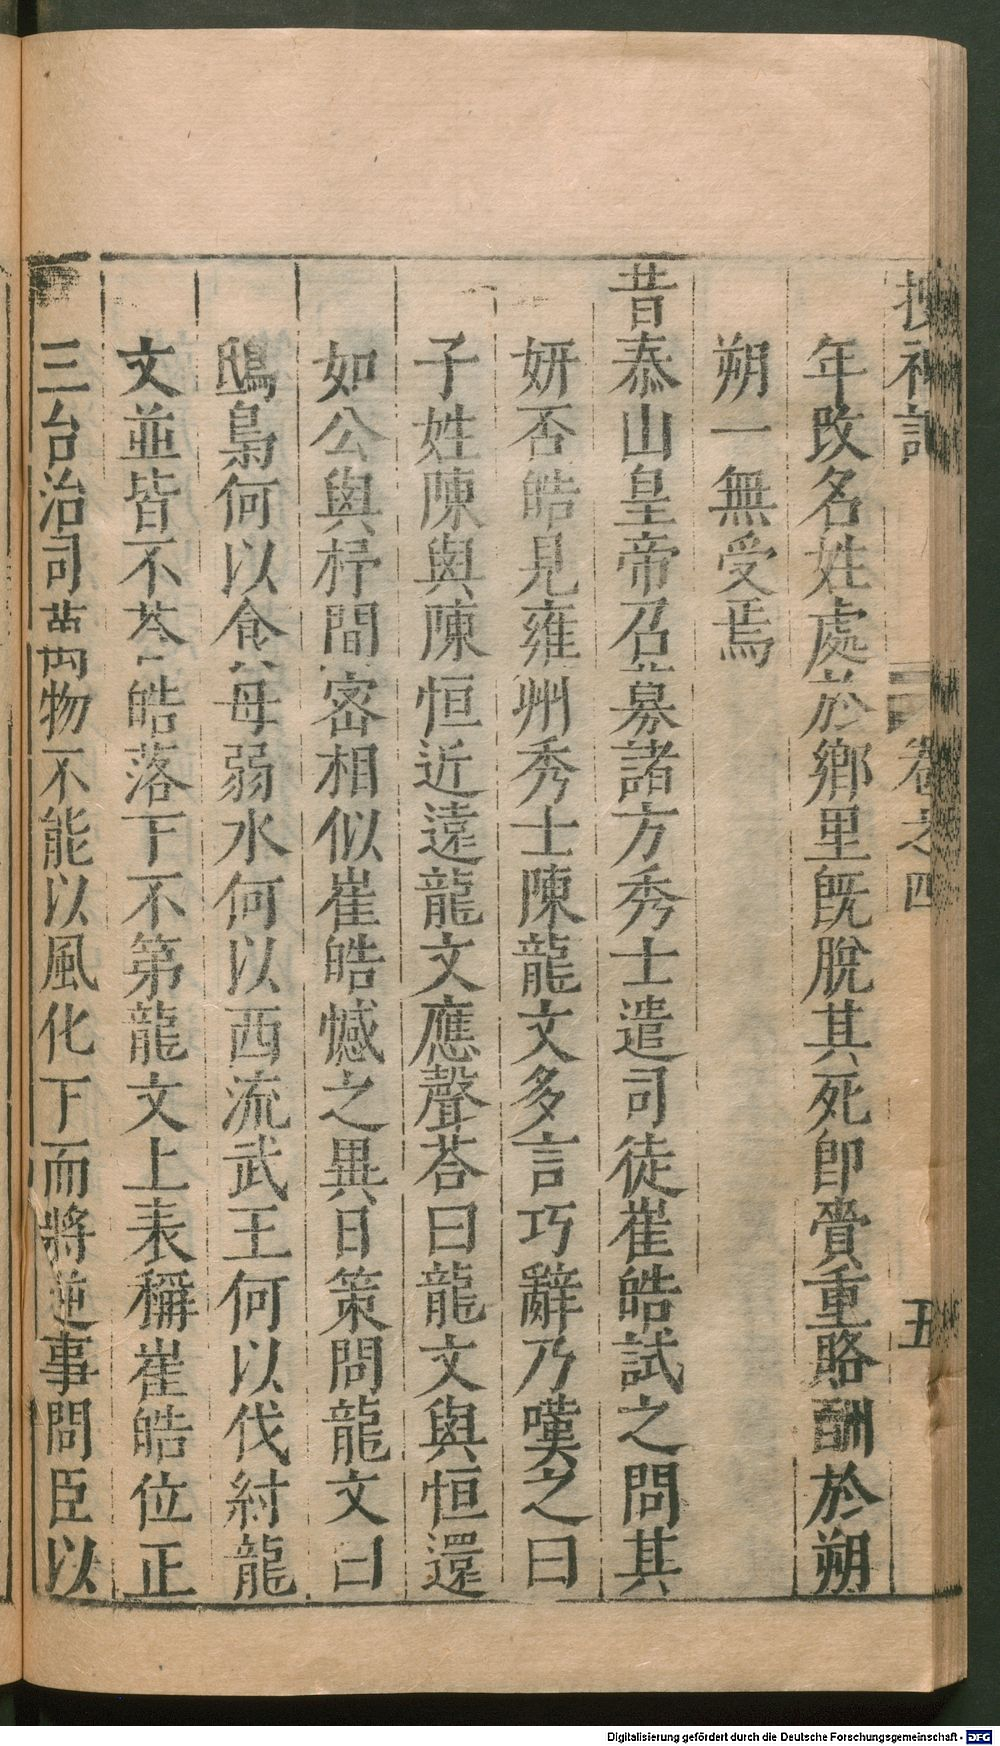 搜神記 卷之四 五
年改名姓處於鄉里旣脫其死卽賫重賂酬於朔
朔一無受焉
昔泰山皇帝召募諸方秀士遣司徒崔皓試之問其
妍否皓見雍州秀士陳龍文多言巧辭乃嘆之曰
子姓陳與陳恒近遠龍文應聲荅曰龍文與恒還
如公與杼間密相似崔皓憾之異日策問龍文曰
鴟梟何以食母弱水何以西流武王何以伐紂龍
文並皆不荅皓落下不第龍文上表稱崔皓位正
三台治司萬物不能以風化下而將逆事問臣以
Digitalisierung gefördert durch die Deutsche Forschungsgemeinschaft - DFG